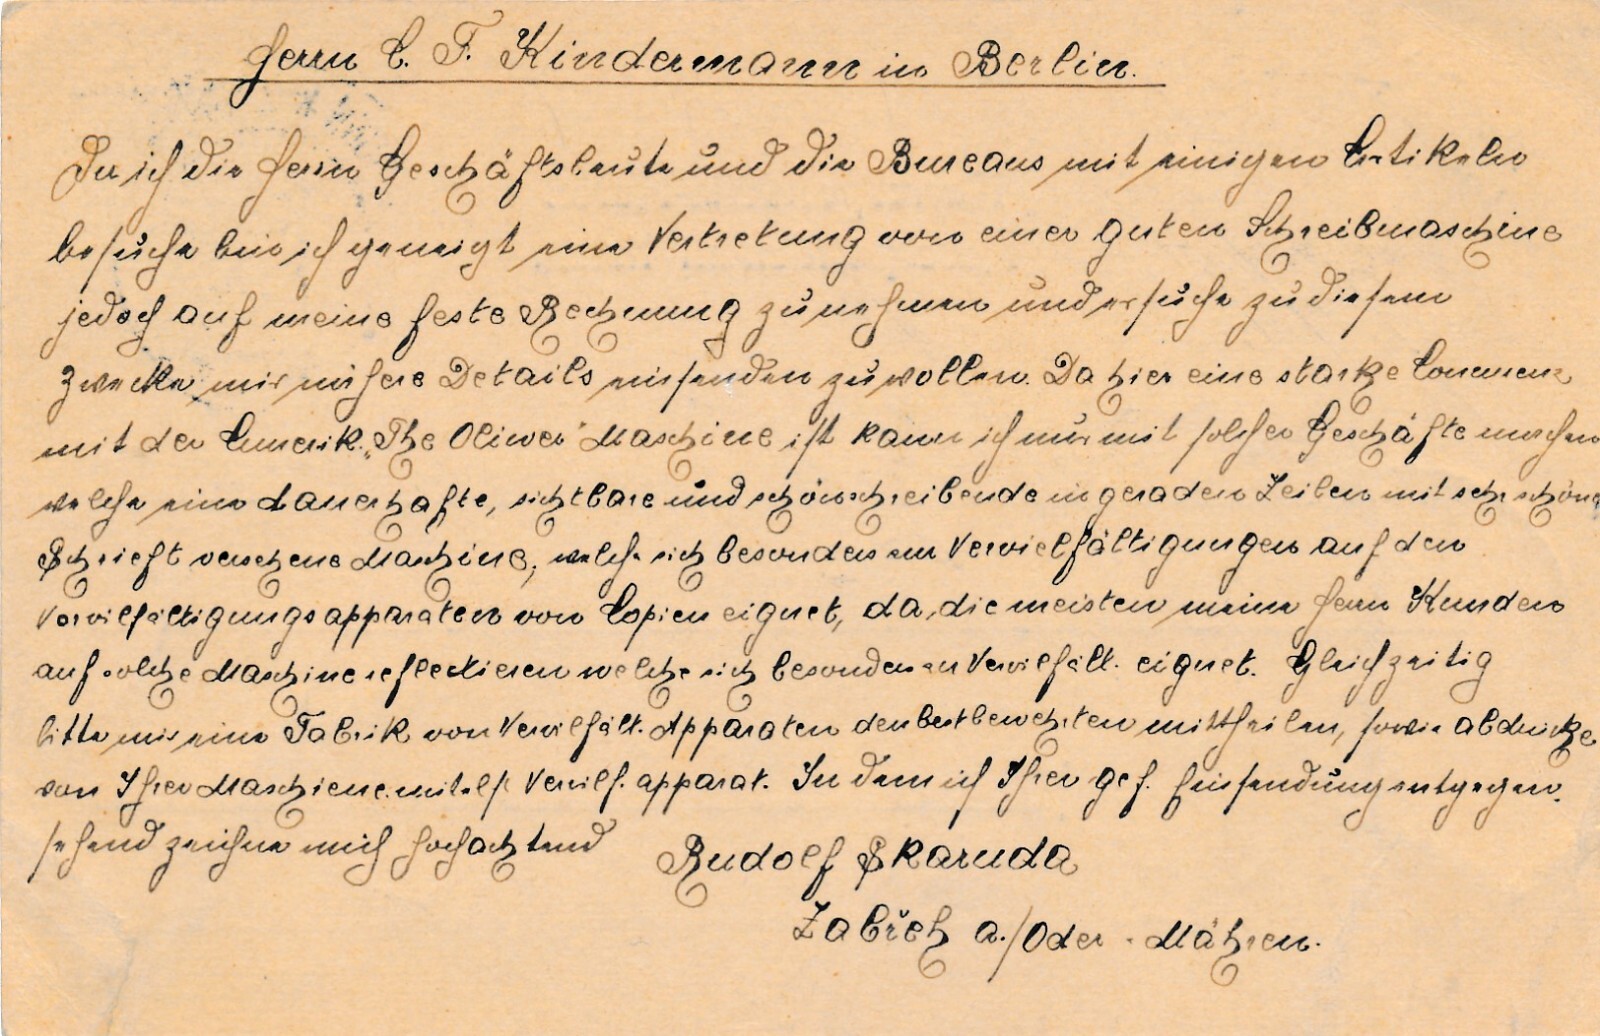 Herrn C. F. Kindermann in Berlin.
Da ich die Herrn Geschäftsleute und die Bureaus mit einigen Artikeln
besuche bin ich geneigt eine Vertretung von einer guten Schreibmaschine
jedoch auf meine feste Rechnung zu nehmen und ersuche zu diesem
Zwecke mir nähere Details einsenden zu wollen. Da hier eine starke
mit der Amerik. „The Oliver" Maschine ist kann ich nur mit solcher Geschäfte machen
welche eine dauerhafte, sichtbare und schönschreibende in geraden Zeilen mit sehr schöne
Schrieft versehene Maschine, welche sich besonders zur Vervielfältigungen auf den
Vervielfältigungsapparaten von Copien eignet, da, die meisten meine Herrn Kunden
auf solche Maschine reflectieren welche sich besonders zur Vervielfält. eignet. Gleichzeitig
bitte mir eine Fabrik von Vervilfält. Apparaten den bestbewehrten mittheilen, sowie abdrücke
von Ihrer Maschiene mitelst Vervilf. apparat. In dem ich Ihrer gef. Einsendung entgegen
sehend zeichne mich hochachtend
Rudolf Skaruda
Zabřeh a./Oder - Mähren.